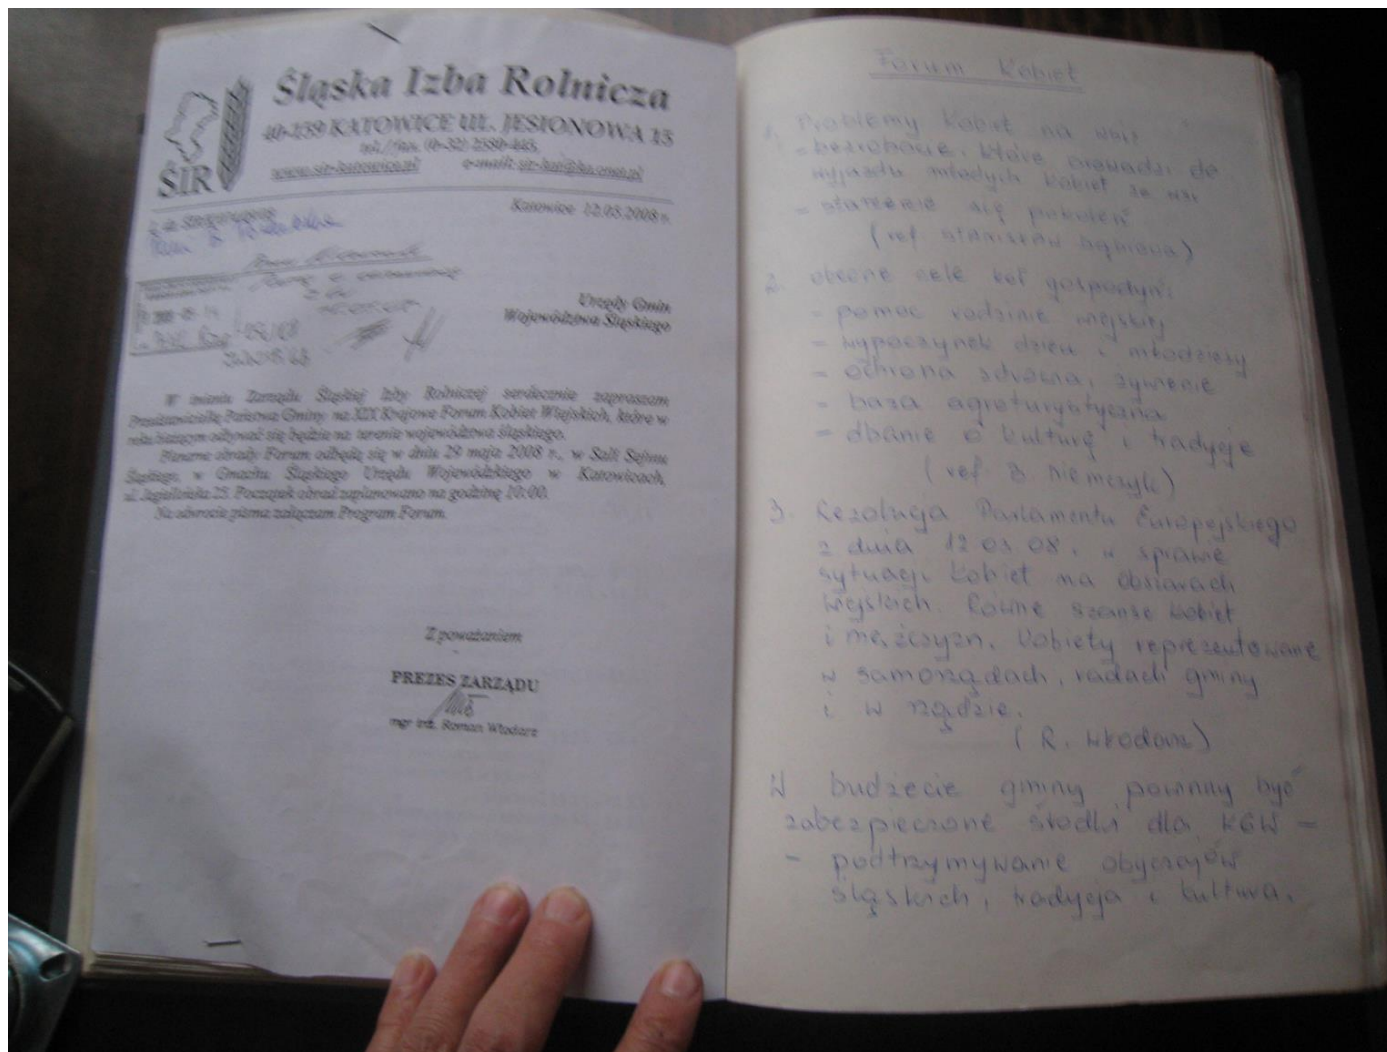 Śląska Izba Rolnicza
40-159 KATOWICE UL. JESIONOWA 15
tel./fax. (0-32) 2580-445,
www.sir-katowice.pl e-mail:
ŚIR
Katowice 12.05.2008 r.
Urzędy Gmin
Województwa Śląskiego
W imieniu Zarządu Śląskiej Izby Rolniczej serdecznie zapraszam
Przedstawicielkę Państwa Gminy na XIX Krajowe Forum Kobiet Wiejskich, które w
roku bieżącym odbywać się będzie na terenie województwa śląskiego.
Plenarne obrady Forum odbędą się w dniu 29 maja 2008 r., w Sali Sejmu
Śląskiego, w Gmachu Śląskiego Urzędu Wojewódzkiego w Katowicach,
ul. Jagiellońska 25. Początek obrad zaplanowano na godzinę 10:00.
Na odwrocie pisma załączam Program Forum.
Z poważaniem
PREZES ZARZĄDU
mgr inż. Roman Włodarz
Forum Kobiet
1. Problemy kobiet na wsi:
- bezrobocie, które prowadzi do
wyjazdu młodych kobiet ze wsi
- starzenie się pokoleń
(ref. Stanisław
2. obecne cele kół gospodyń:
- pomoc rodzinie wiejskiej
- wypoczynek dzieci i młodzieży
- ochrona zdrowia, żywienie
- baza agroturystyczna
- dbanie o kulturę i tradycje
(ref B. Niemczyk)
3. Rezolucja Parlamentu Europejskiego
z dnia 12 03 08. w sprawie
sytuacji kobiet na obszarach
wiejskich. Równe szanse kobiet
i mężczyzn. Kobiety reprezentowane
w samorządach, radach gminy
i w rządzie.
(R. Włodarz)
W budżecie gminy powinny być
zabezpieczone środki dla KGW -
- podtrzymywanie obyczajów
śląskich, tradycja i kultura.